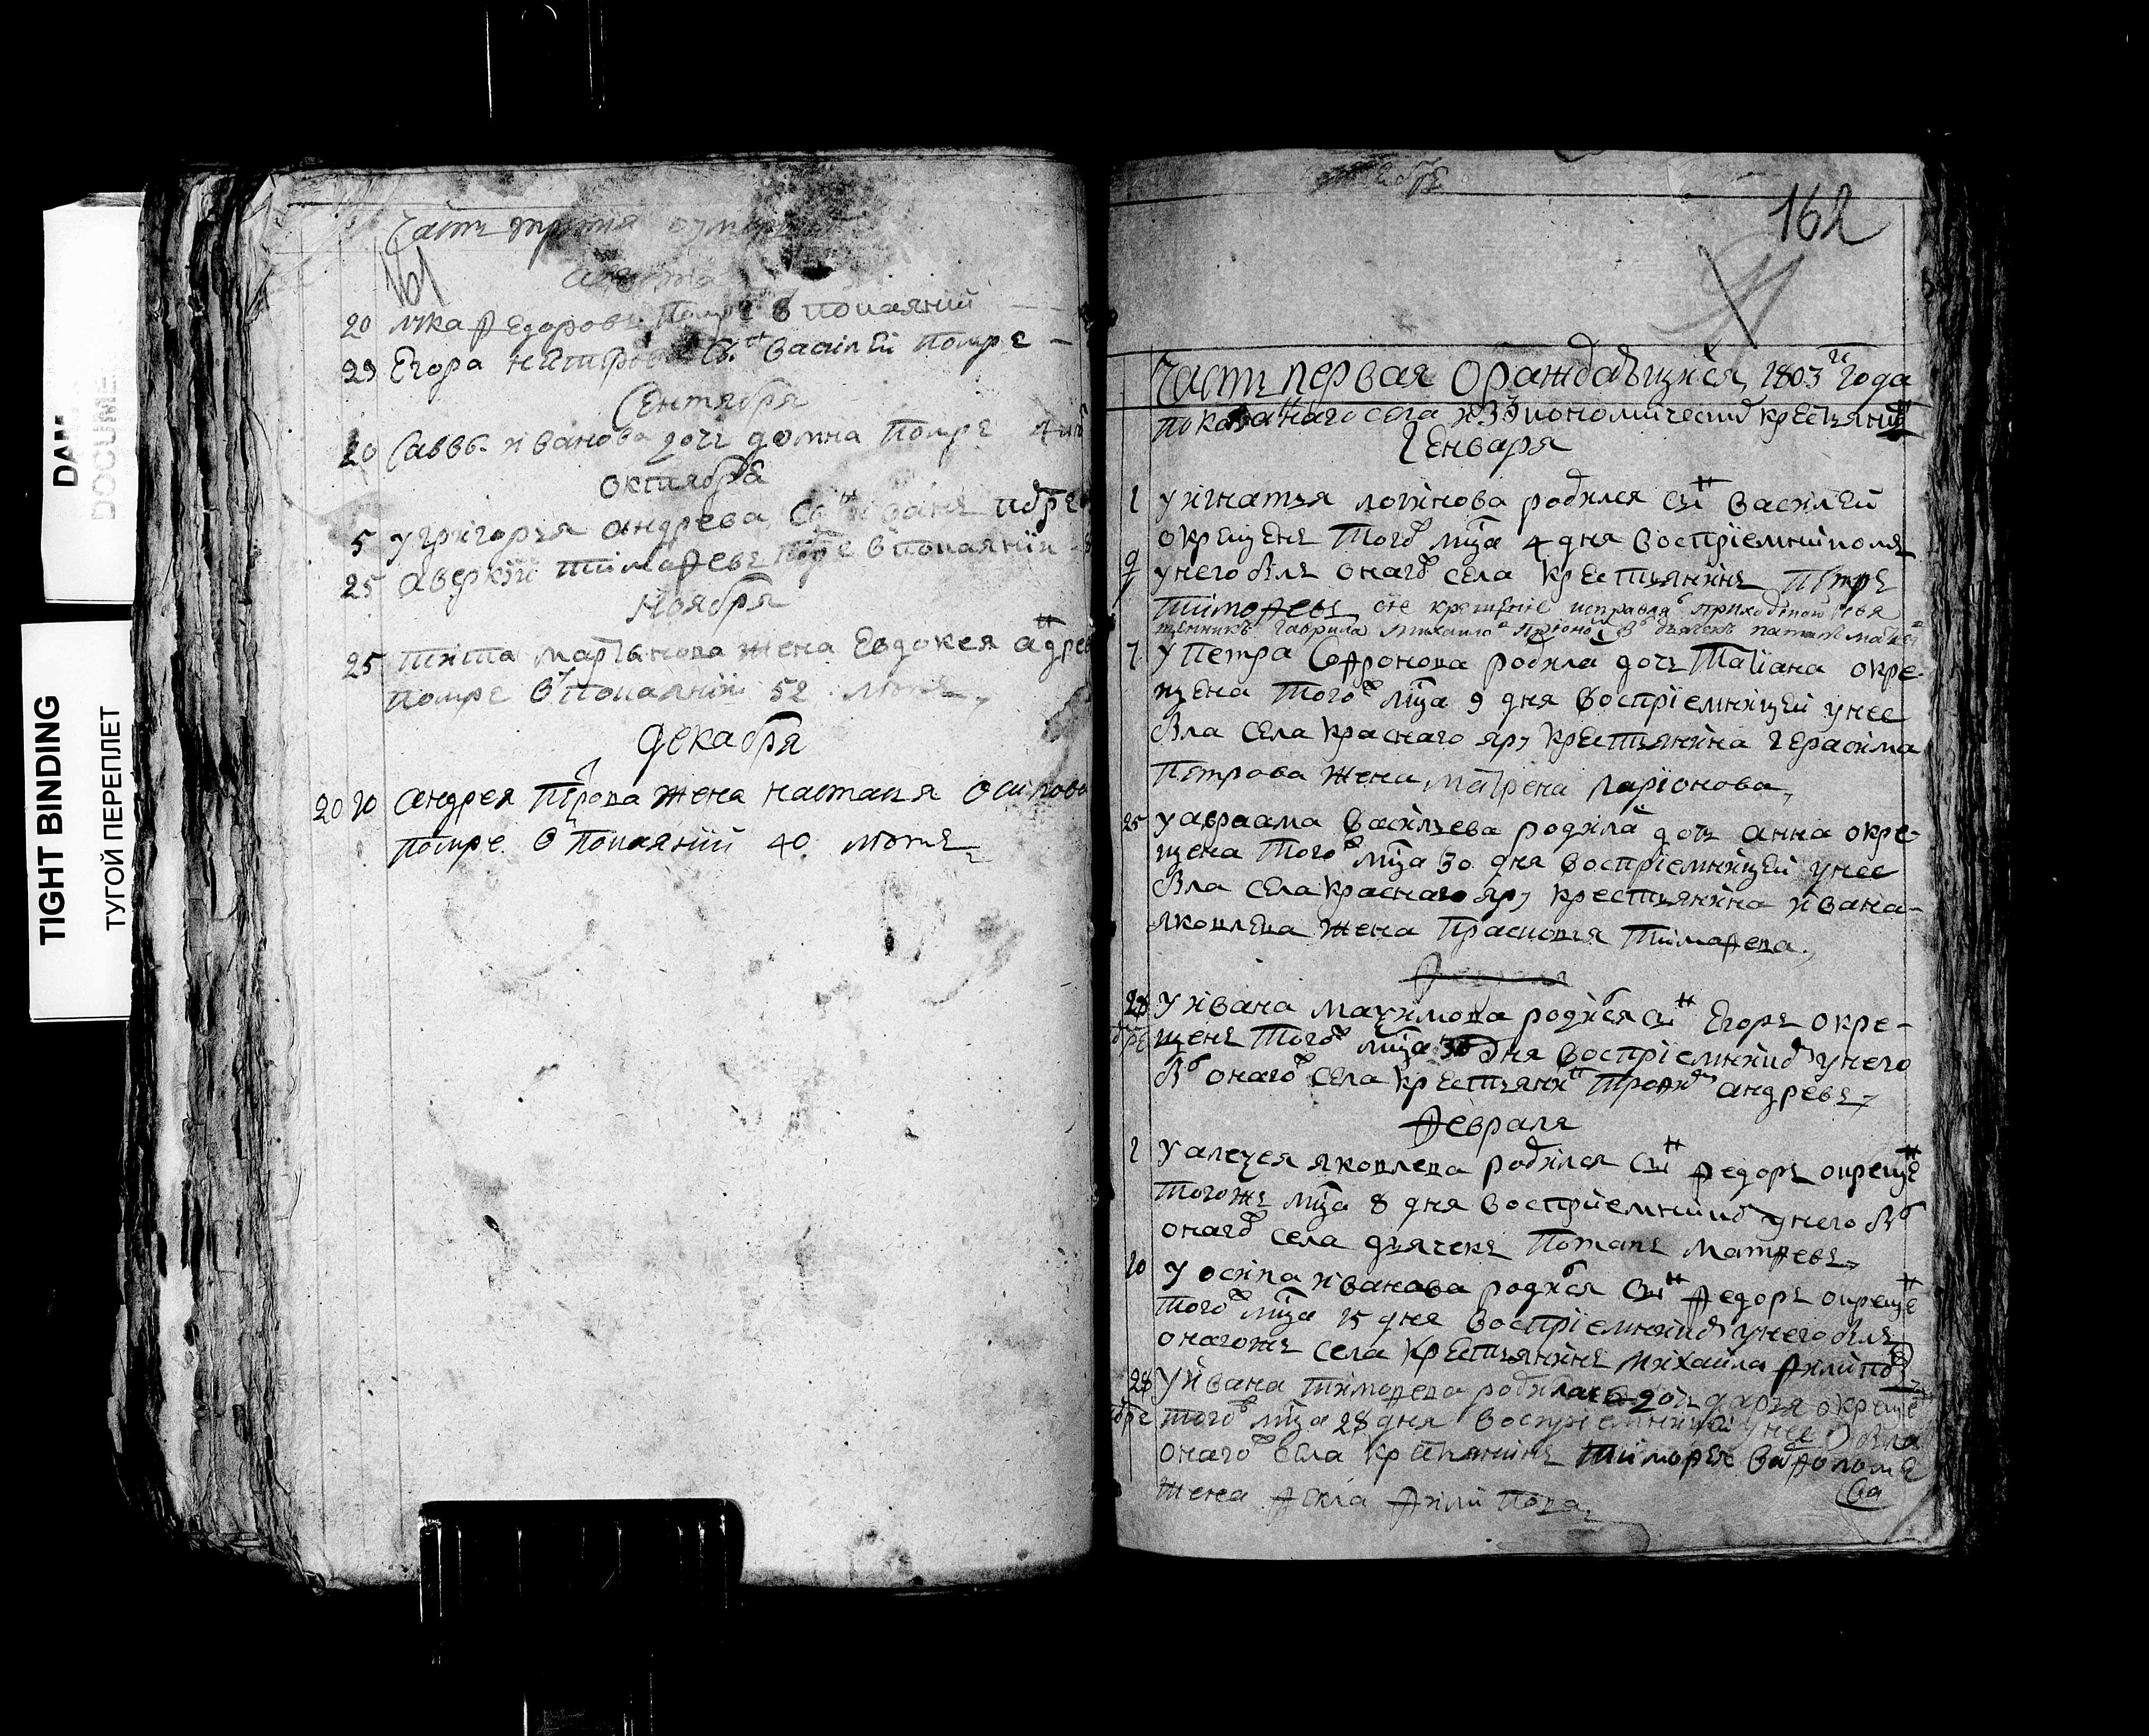 DAM
DOCUME
TIGHT BINDING
ТУГОЙ ПЕРЕПЛЕТ
Часть третия
161
20 Федоровъ помре в покаянии
29 Егора Василей помре
Сентября
20 Саввы Иванова дочь домна помре
октября
5 У григорья андрева
25 аверкий тимофевъ в покаянии
Ноября
25 Тита мартынова жена Евдокея
помре в покаянии 52 летъ
декабря
20 20 андрея жена настася осипова
помре в покаянии 40 летъ
162
Часть первая О раждающихся 1803 года
показаннаго села икономическихъ крестьянъ
Генваря
1 У игнатья логинова родился сынъ василей
окрещенъ того мца 4 дня восприемникомъ
у него былъ онаго села крестьянинъ петръ
Тимофевъ сие крещение исправлялъ приходской свя
щенникъ гаврила михайло
7 У петра Софронова родила дочь Татiана окре
щена того мца 9 дня восприемницей у нее
была села краснаго яру крестьянина герасима
петрова жена матрена ларионова
25 У авраама васильева родила дочь анна окре
щена того мца 30 дня восприемницей у нее
была села краснаго яру крестьянина ивана
яковлева жена Прасковья тимофева
28 У ивана максимова родился сынъ Егоръ окре
щенъ того мца 30 дня восприемникъ у него
былъ онаго села крестьянинъ андревъ
февраля
1 У алексея яковлева родился сынъ федоръ окреще
тогожъ мца 8 дня восприемникъ у него былъ
онаго села дьячекъ Потапъ матфевъ
10 У осипа иванова родился сынъ федоръ окреще
того мца 15 дня восприемникъ у него былъ
онагожъ села крестьянинъ михайла филипо
28 У ивана тимофева родилась дочь дарья окреще
того мца 28 дня восприемницей у нее была
онаго села тимофея варфоломе
ва
жена фекла филипова